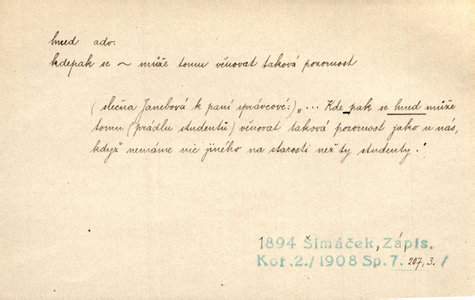 hned adv.
kdepak se ~ může tomu věnovat taková pozornost
(slečna Janebová k paní správcové:) „... Kde pak se hned může
tomu (prádlu studentů) věnovat taková pozornost jako u nás,
když nemáme nic jiného na starosti než ty studenty."
1894 Šimáček, Zápis.
Koř.2./1908 Sp.7. 207, 3. /